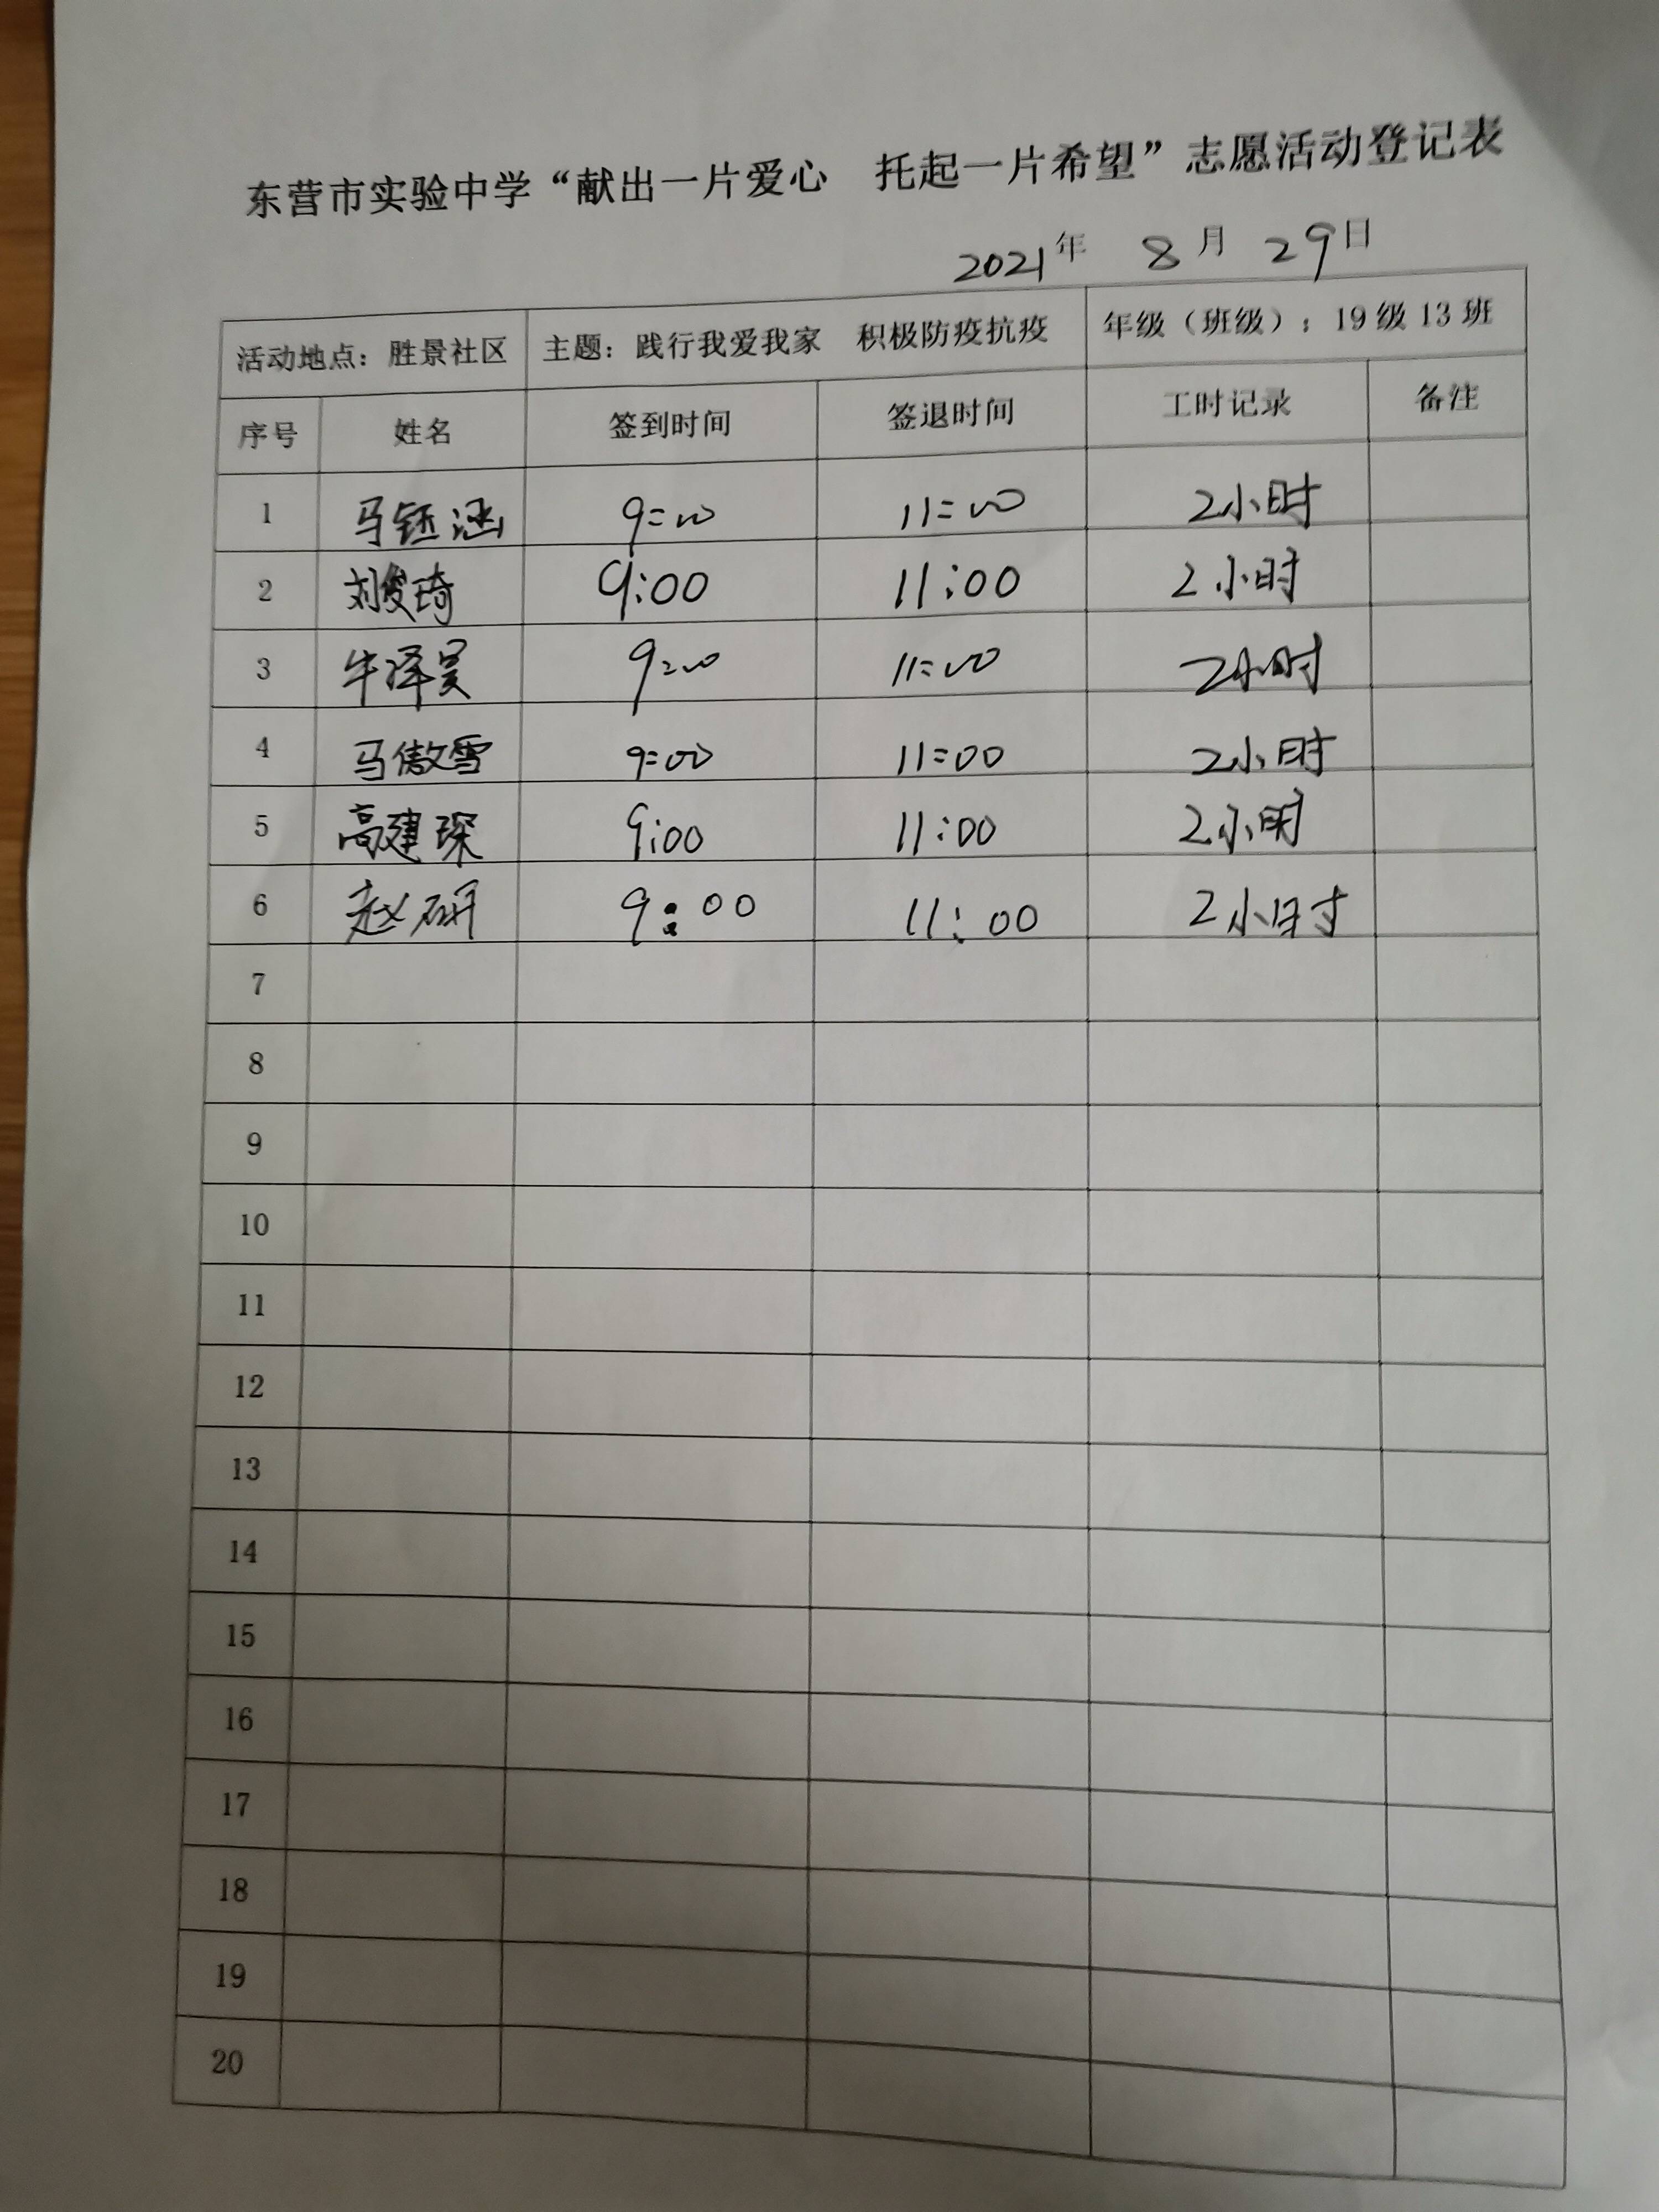 东营市实验中学“献出一片爱心 托起一片希望”志愿活动登记表
2021年 8月 29日
活动地点：胜景社区 主题：践行我爱我家 积极防疫抗疫 年级（班级）：19级13班
序号 姓名 签到时间 签退时间 工时记录 备注
1 马钰涵 9:00 11:00 2小时
2 刘俊琦 9:00 11:00 2小时
3 牛泽昊 9:00 11:00 2小时
4 马傲雪 9:00 11:00 2小时
5 高建琛 9:00 11:00 2小时
6 赵研 9:00 11:00 2小时
7
8
9
10
11
12
13
14
15
16
17
18
19
20